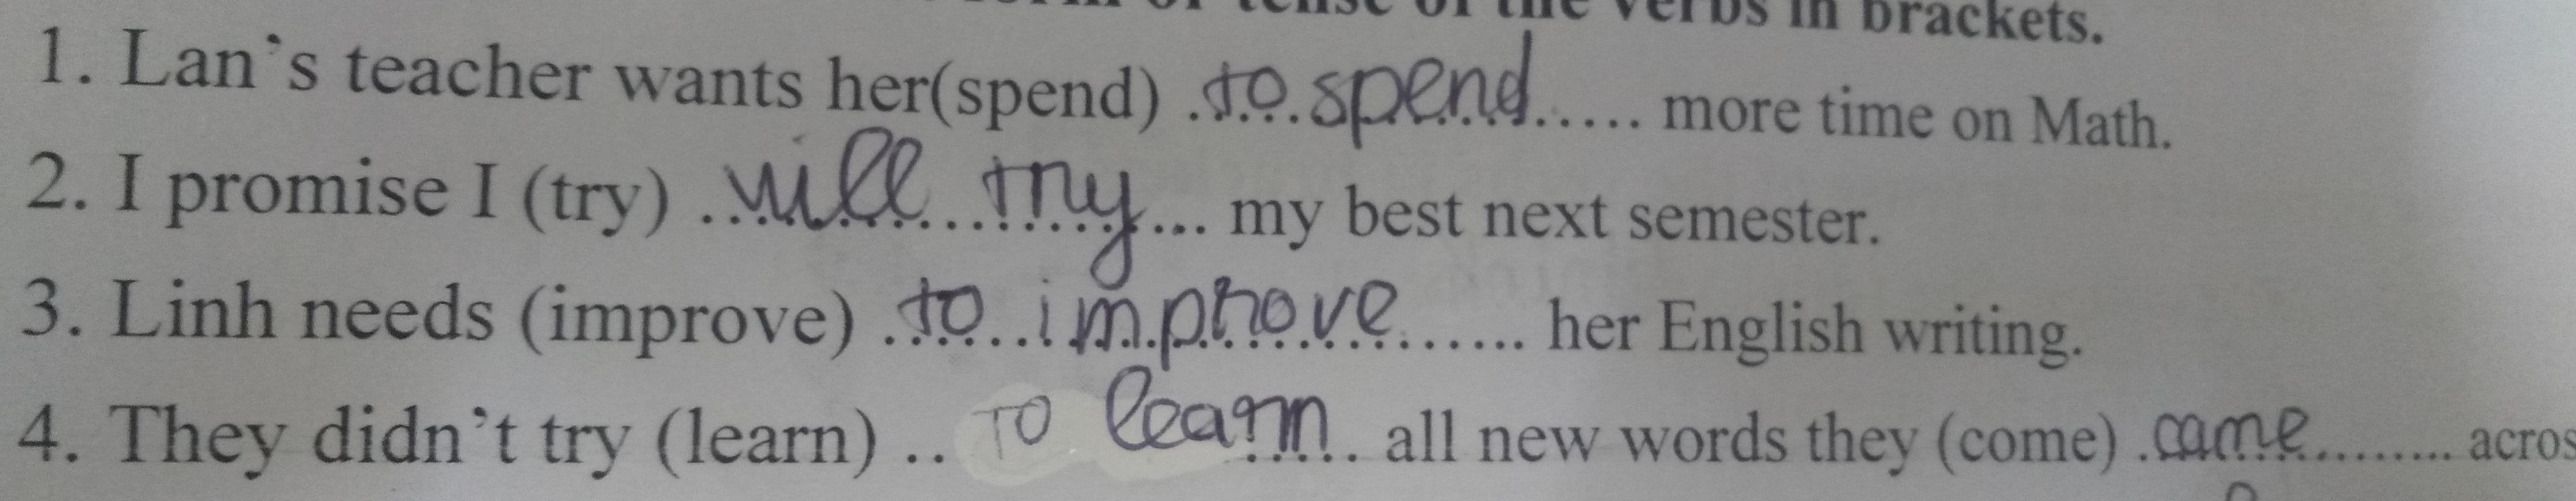 form or tense of the verbs in brackets.
1. Lan's teacher wants her(spend) ..to spend..... more time on Math.
2. I promise I (try) ...will try... my best next semester.
3. Linh needs (improve) ..to improve....... her English writing.
4. They didn't try (learn) .. To learn..... all new words they (come) .came......... acros